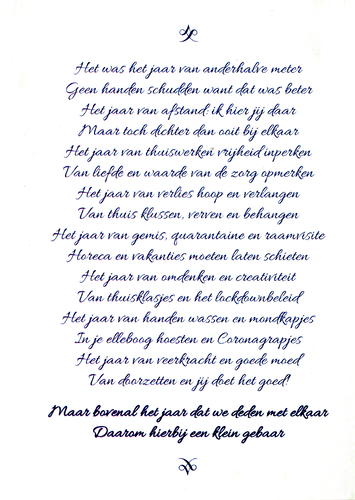 Het was het jaar van anderhalve meter
Geen handen schudden want dat was beter
Het jaar van afstand: ik hier jij daar
Maar toch dichter dan ooit bij elkaar
Het jaar van thuiswerken vrijheid inperken
Van liefde en waarde van de zorg opmerken
Het jaar van verlies hoop en verlangen
Van thuis klussen, verven en behangen
Het jaar van gemis, quarantaine en raamvisite
Horeca en vakanties moeten laten schieten
Het jaar van omdenken en creativiteit
Van thuisklasjes en het lockdownbeleid
Het jaar van handen wassen en mondkapjes
In je elleboog hoesten en Coronagrapjes
Het jaar van veerkracht en goede moed
Van doorzetten en jij doet het goed!
Maar bovenal het jaar dat we deden met elkaar
Daarom hierbij een klein gebaar